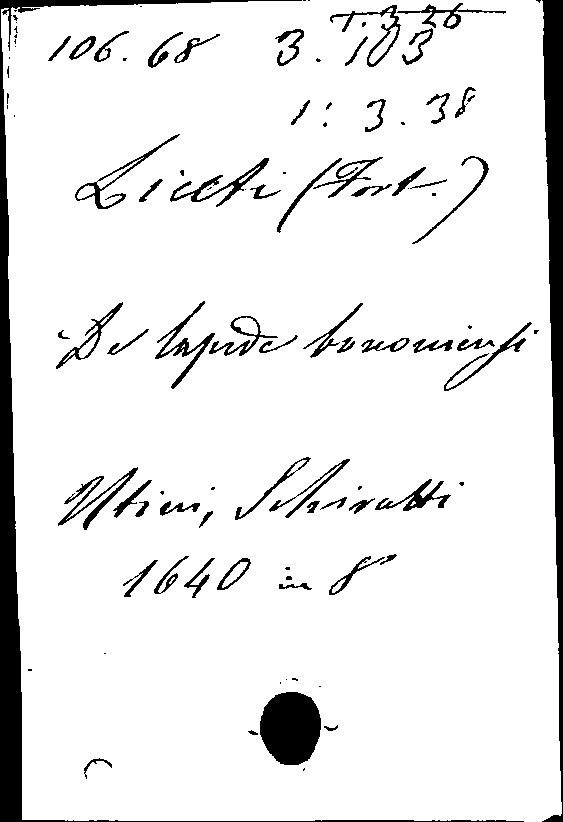 1.3.36
106.68 3.103
1:3.38
Liceti (Fort.)
De lapide bononiensi
Utini, Schiratti
1640 in 8°